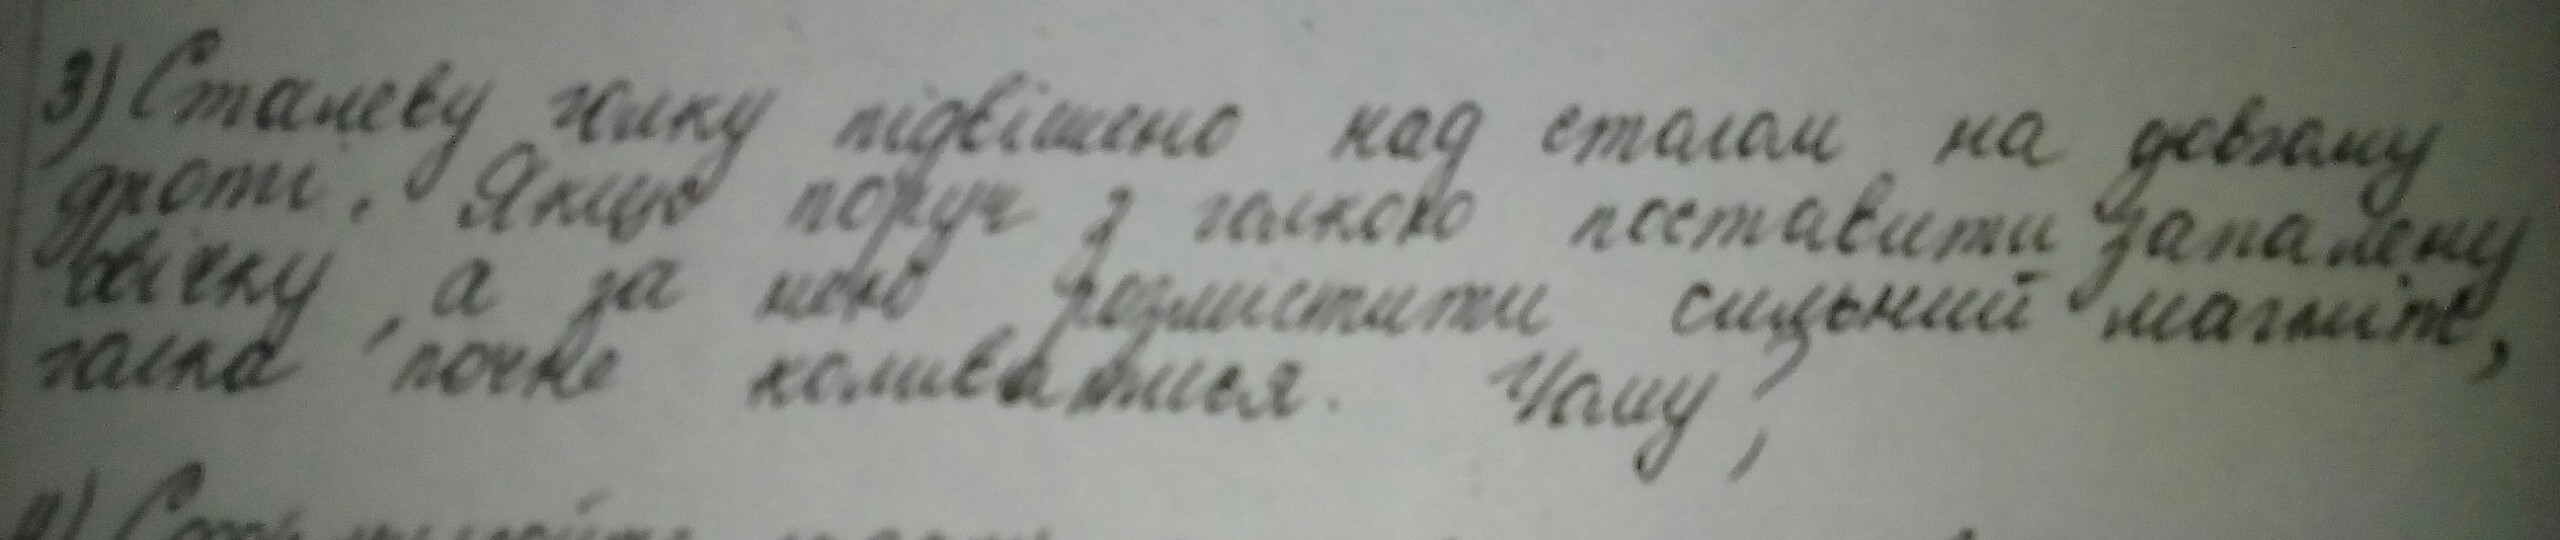 3) Сталеву голку підвішено над столом на довгому
дроті. Якщо поруч з голкою поставити запалену
свічку, а за нею розмістити сильний магніт,
голка почне коливатися. Чому?